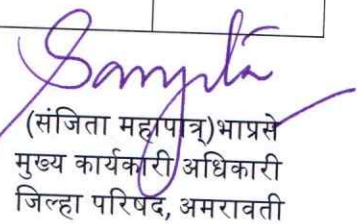 Sanjita
(संजिता महापात्र)भाप्रसे
मुख्य कार्यकारी अधिकारी
जिल्हा परिषद, अमरावती